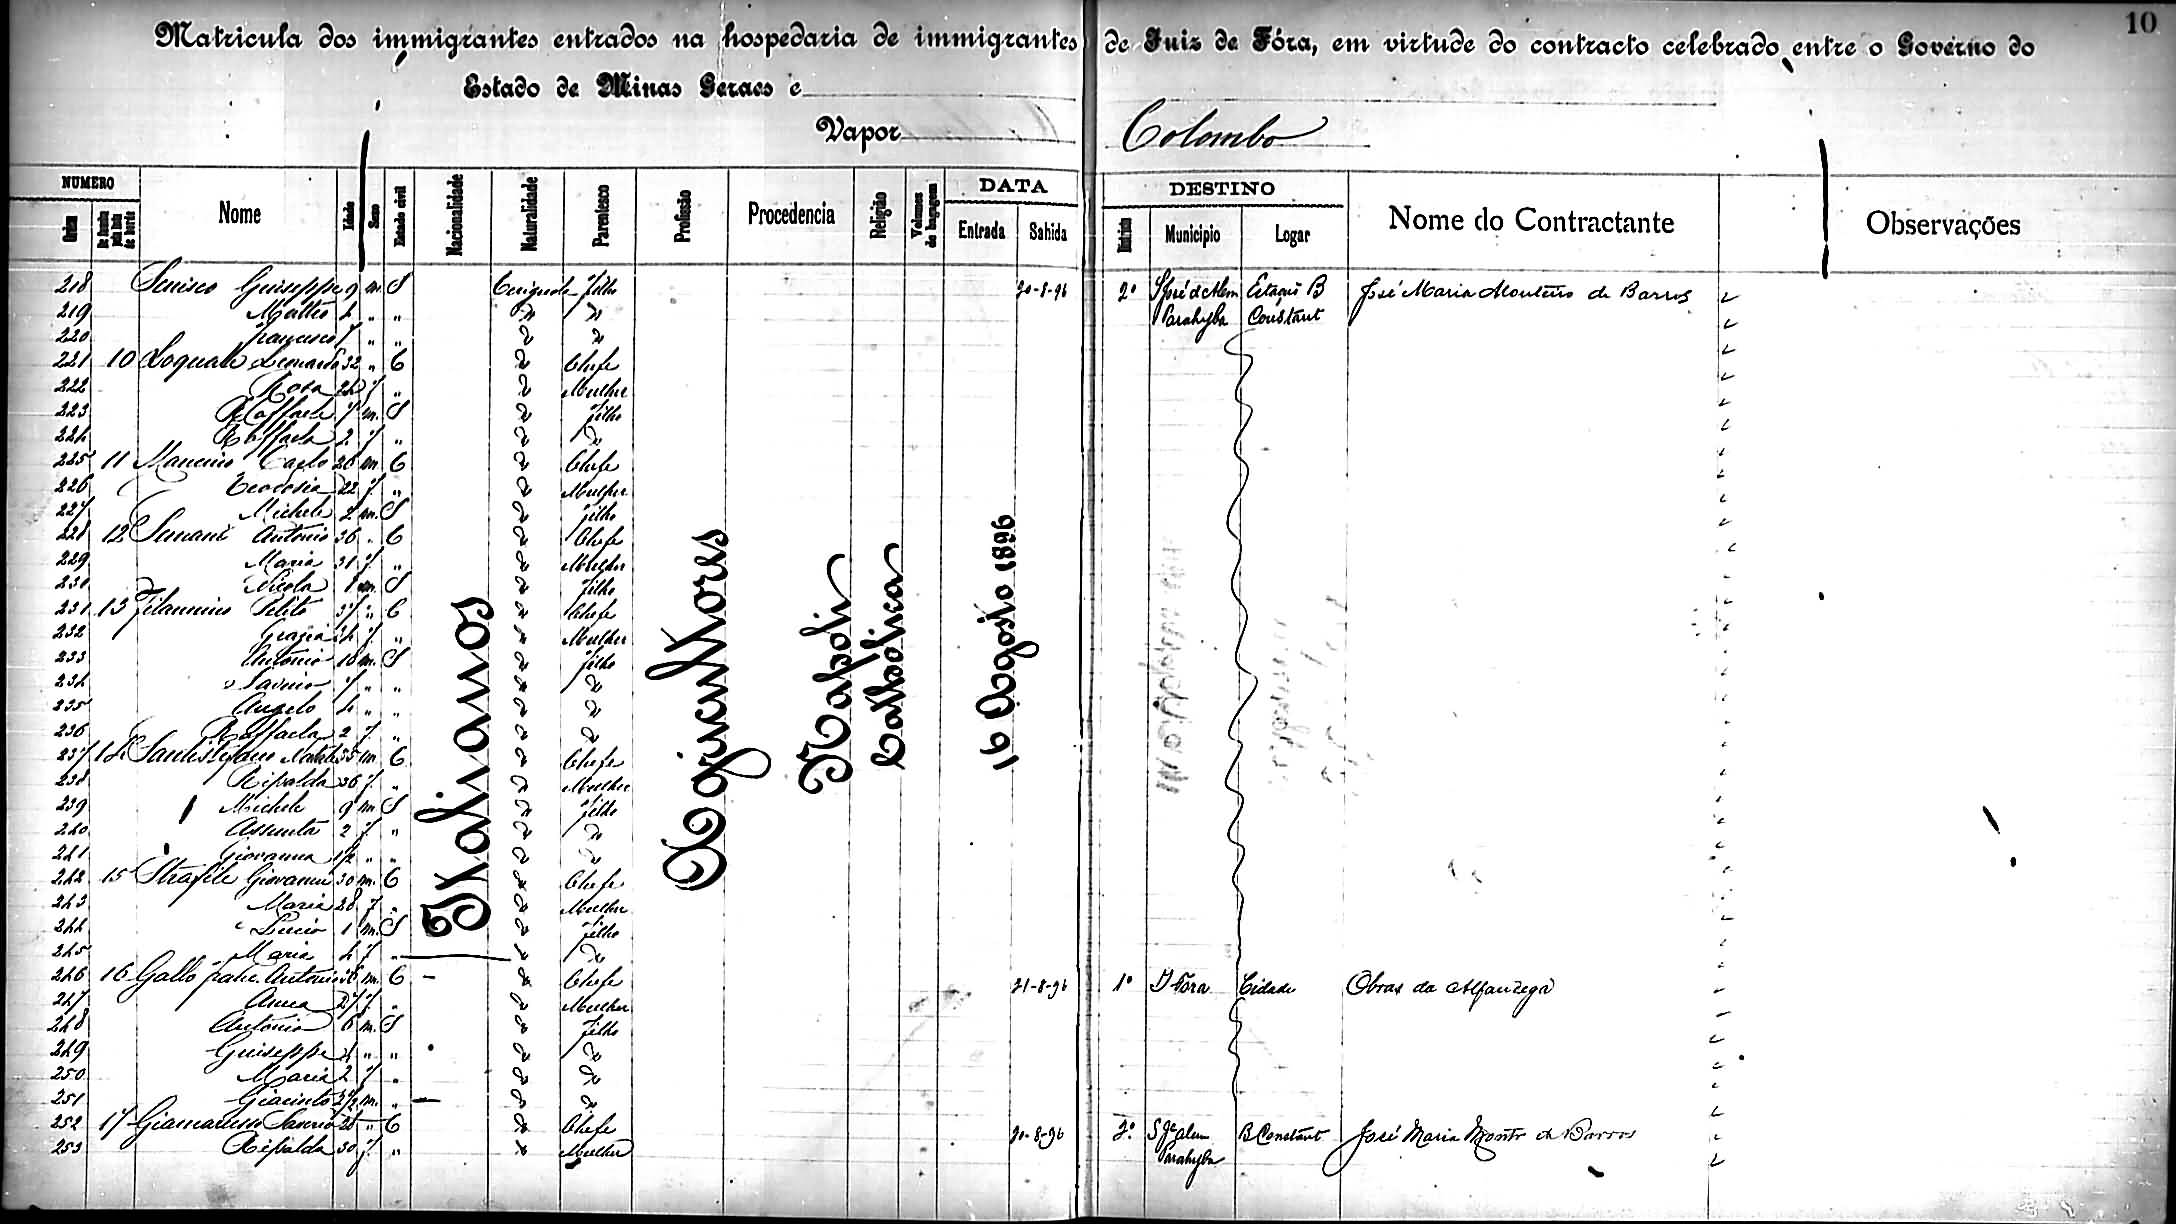 10
Matricula dos immigrantes entrados na hospedaria de immigrantes de Juiz de Fóra, em virtude do contracto celebrado entre o Governo do
Estado de Minas Geraes e
Vapor Colombo
NUMERO DATA DESTINO
Ordem Nome Idade Sexo Estado civil Nacionalidade Naturalidade Parentesco Profissão Procedencia Religião Volumes de bagagem Entrada Sahida Districto Municipio Logar Nome do Contractante Observações
Italianos Agricultores Napoli Catholica 16 Agosto 1896
218 Giuseppe 9 m. S Cerignola filho 20-8-96 2º S José d'Alem Estação B José Maria Monteiro de Barros
219 Matteo 4 " " " " Parahyba Constant
220 Francesco " "
221 10 Leonardo 32 " C " Chefe
222 Rosa f. " " Mulher
223 Raffaele 7 m. S " filho
224 Raffaela 2 f. " " "
225 11 Mancino Carlo 26 m. C " Chefe
226 Teodosia 22 f. " " Mulher
227 Michele 2 m. S " filho
228 12 Antonio 36 " C " Chefe
229 Maria 31 f. " " Mulher
230 Nicola 1 m. S " filho
231 13 37 " C " Chefe
232 Grazia 34 f. " " Mulher
233 Antonio 10 m. S " filho
234 Saverio 7 " " " "
235 Angelo 4 " " " "
236 Raffaela 2 f. " " "
237 14 Santistefano Natale 35 m. C " Chefe
238 Ripalda 36 f. " " Mulher
239 Michele 9 m. S " filho
240 Assunta 2 f. " " "
241 Giovanna 1/2 " " " "
242 15 Strafile Giovanni 30 m. C " Chefe
243 Maria 28 f. " " Mulher
244 Lucio 1 m. S " filho
245 Maria 4 f. " " "
246 16 Gallo Antonio 36 m. C " Chefe 21-8-96 1º J. Fora Cidade Obras da Alfandega
247 Anna 27 f. " " Mulher
248 Antonio 6 m. S " filho
249 Guiseppe 4 " " " "
250 Maria 2 f. " " "
251 Giacinto m. " " "
252 17 Giamarusso Saverio " C " Chefe 20-8-96 2º. S Jé alem B Constant José Maria Montr de Barros
253 Ripalda 30 f. " " Mulher Parahyba